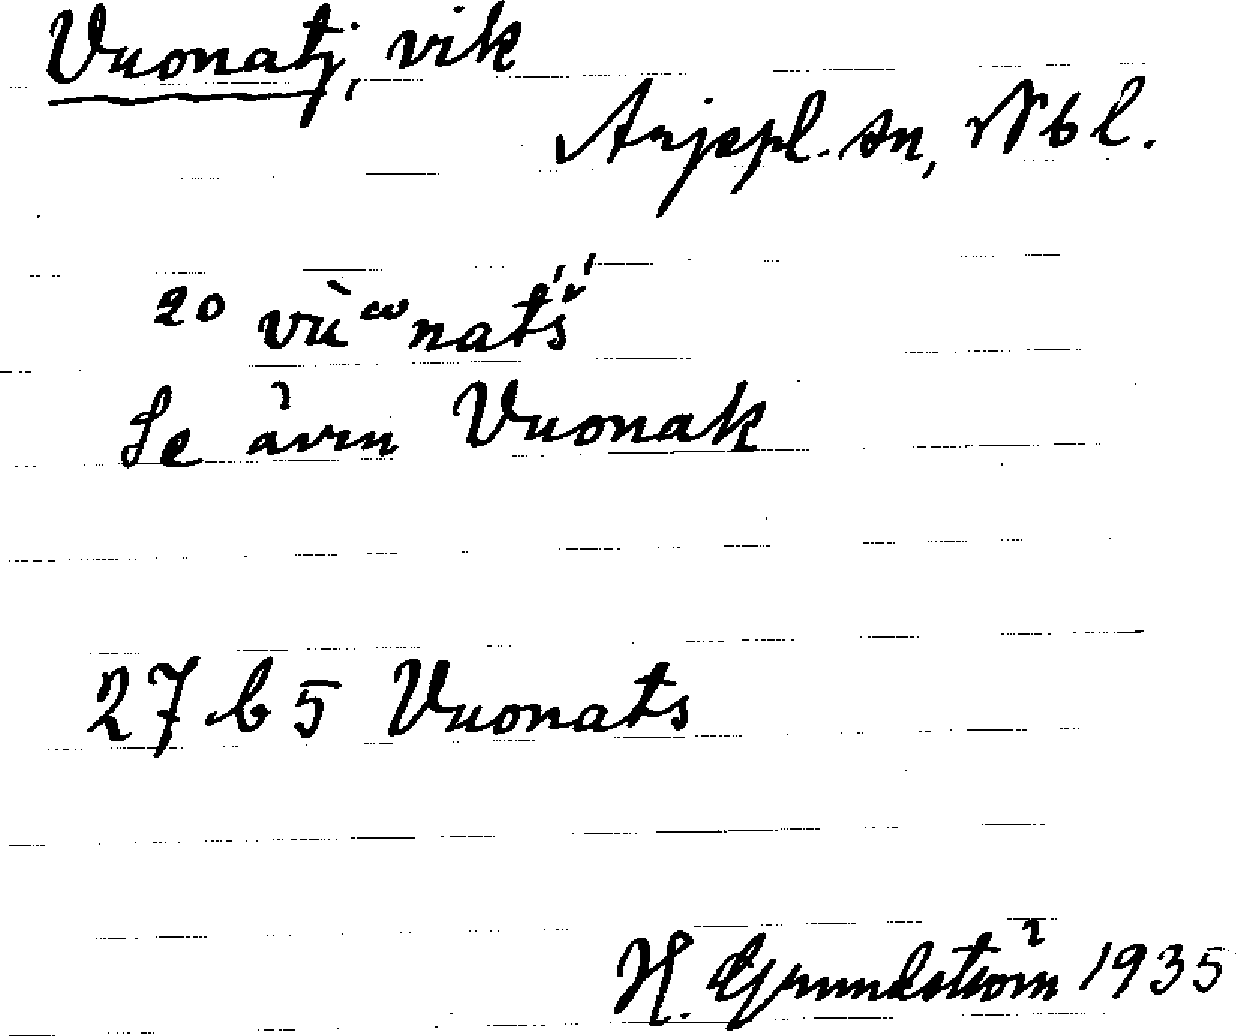 Vuonatj, vik
Arjepl. sn, Nbl.
20 vùᵚnat́š́
Se även Vuonak
27 b 5 Vuonats
H. Grundström 1935